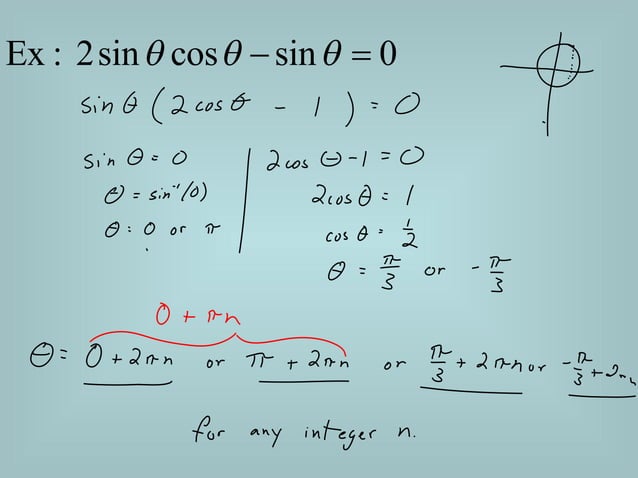 Ex : 2 sin θ cos θ − sin θ = 0
sin θ ( 2 cos θ - 1 ) = 0
sin θ = 0
2 cos θ - 1 = 0
θ = sin⁻¹(0)
2 cos θ = 1
θ = 0 or π
cos θ = 1/2
θ = π/3 or -π/3
0 + πn
θ = 0 + 2πn or π + 2πn or π/3 + 2πn or -π/3 + 2πn
for any integer n.